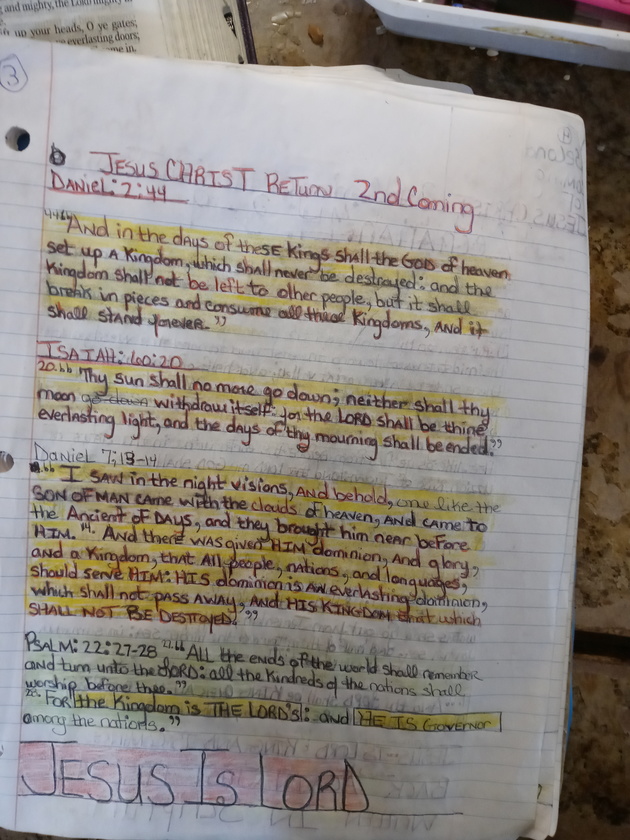 and mighty, the Lord mighty in
up your heads, O ye gates;
everlasting doors;
come in.
3
JESUS CHRIST RETURN 2nd Coming
DANIEL: 2:44
44 "And in the days of theSE Kings shall the GOD of heaven,
set up A Kingdom, which shall never be destroyed: and the
Kingdom shall not be left to other people, but it shall
break in pieces and consume all these Kingdoms, AND it
shall STAND forever."
ISAIAH: 60:20
20. "Thy sun shall no more go down; neither shall thy
moon go down withdraw itself: for the LORD shall be thine
everlasting light, and the days of thy mourning shall be ended."
Daniel 7;13-14
"I SAW in the night visions, AND behold, one like the
SON OF MAN came with the clouds of heaven, AND came to
the Ancient OF DAYS, and they brought him near before
HIM. 14. And there WAS given HIM dominion, And glory,
and a Kingdom, that All people, nations, and languages,
should serve HIM: HIS dominion is AN everlasting dominion,
which shall not pass AWAY, AND HIS KINGDOM that which
SHALL NOT BE DESTROYED."
PSALM: 22:27-28 27 "ALL the ends of the world shall remember
and turn unto the LORD: all the Kindreds of the nations shall
worship before thee."
28. "For the Kingdom is THE LORD'S: and HE IS GOVERNOR
among the nations."
JESUS IS LORD